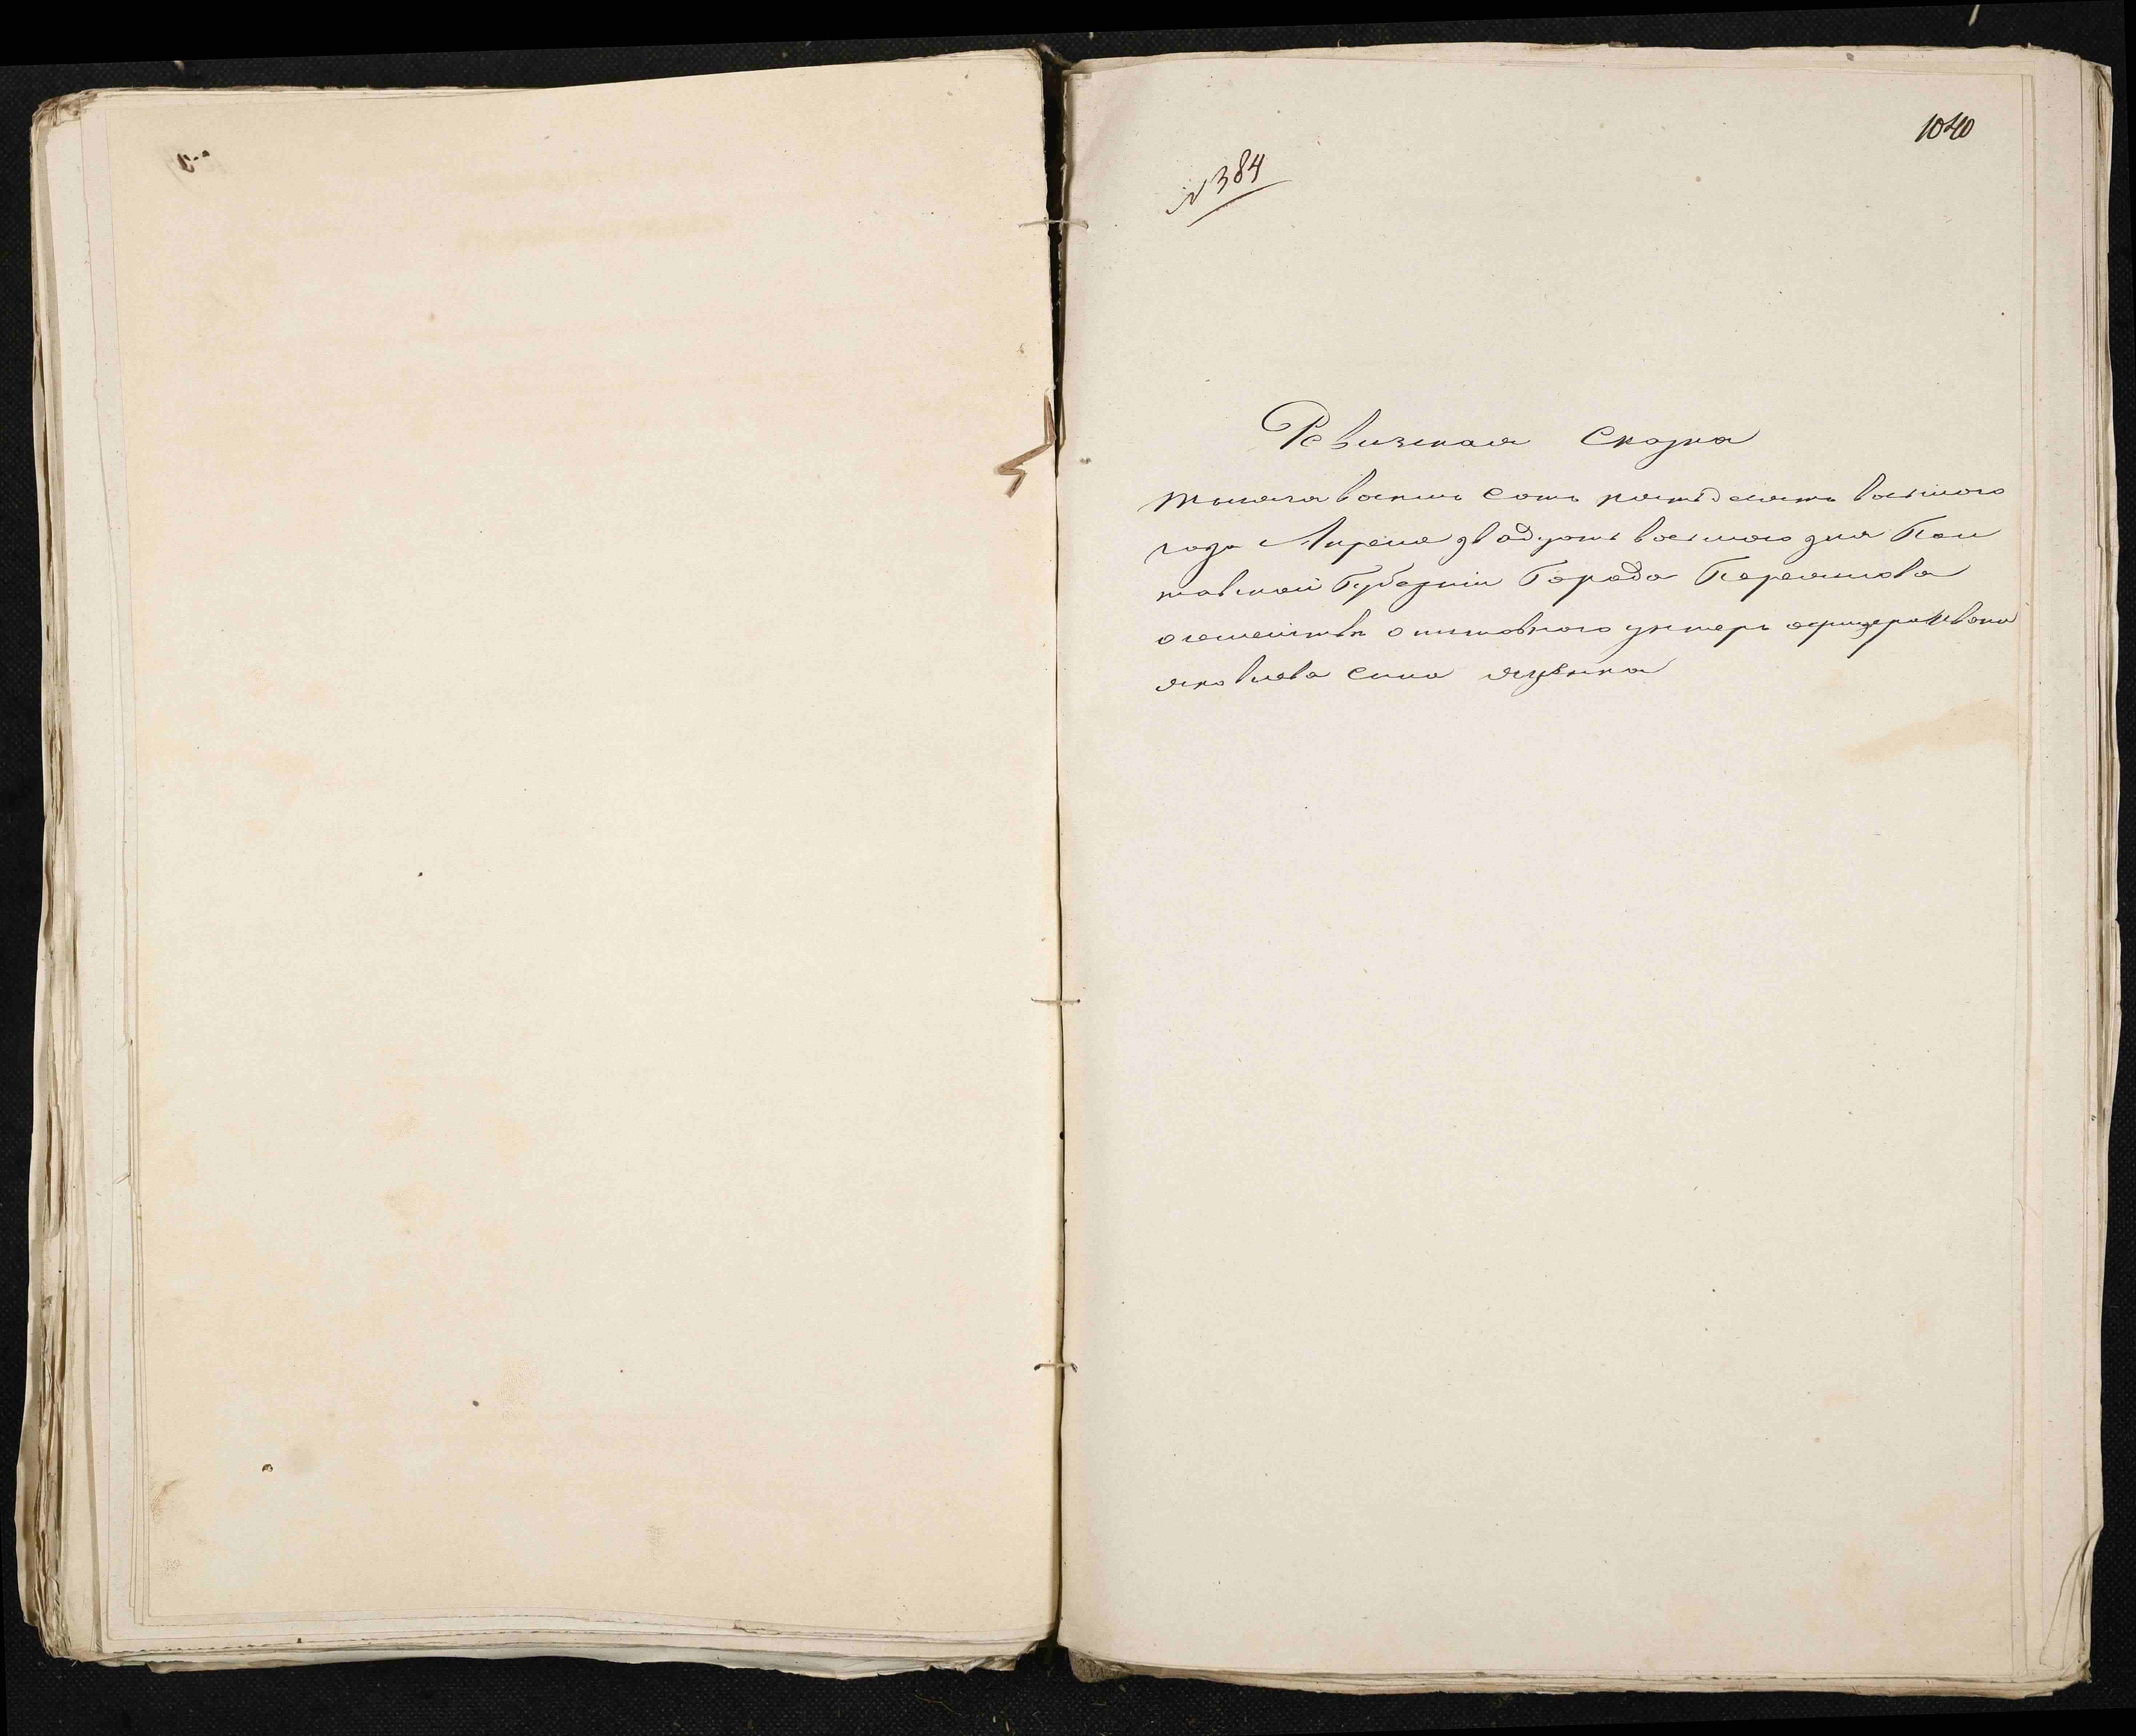 1040
№ 384
Ревизская Сказка
тысяча восемь сотъ пятьдесятъ восьмого
года Апреля двадцать восьмого дня Пол
тавской Губернии Города Переяслова
о семействѣ отставного унтеръ офицера Ивана
яковлева сина яценка